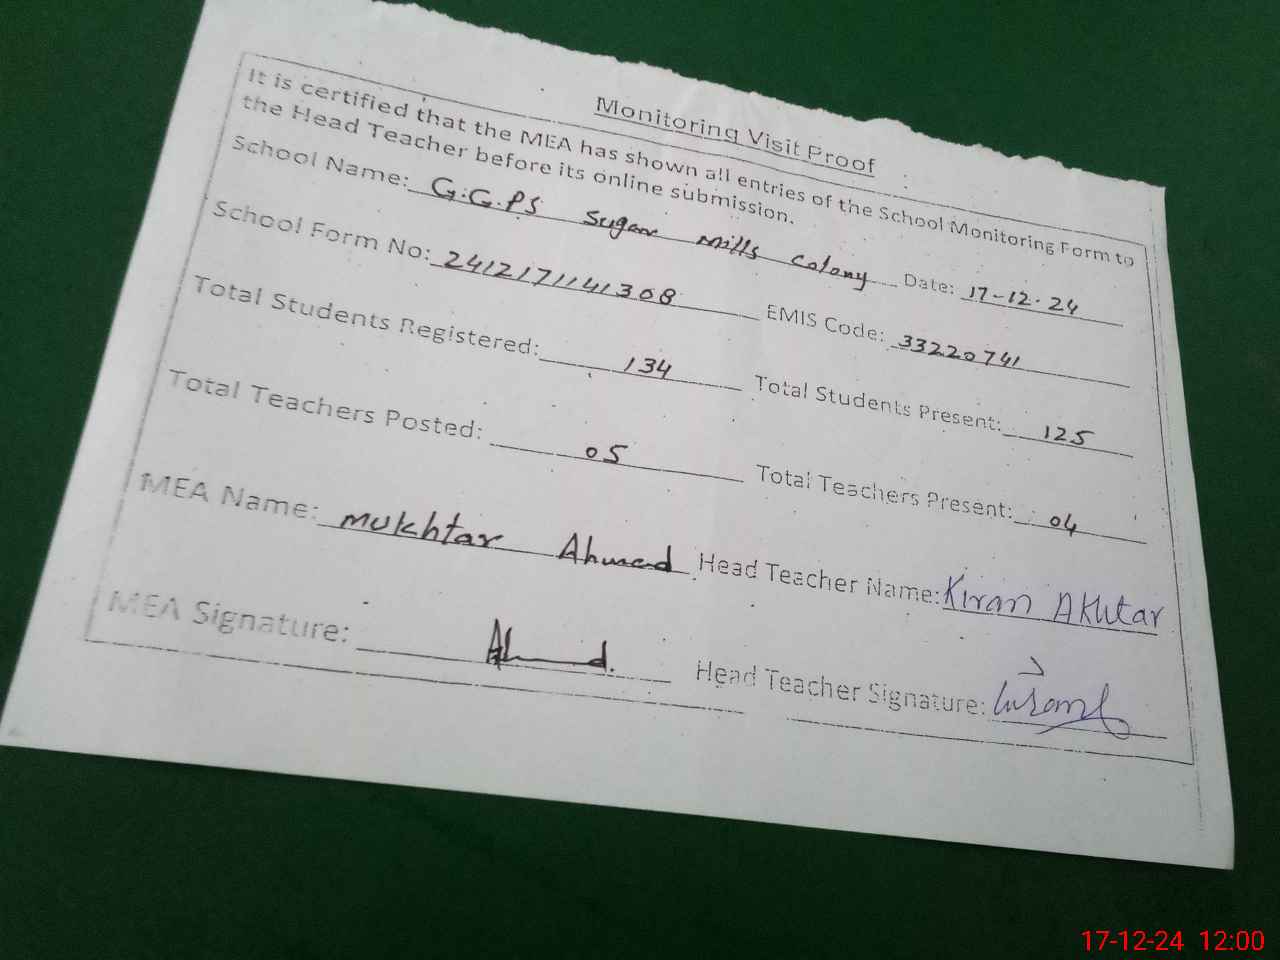 Monitoring Visit Proof
It is certified that the MEA has shown all entries of the School Monitoring Form to
the Head Teacher before its online submission.
School Name: G.G.PS Sugar Mills Colony Date: 17-12-24
School Form No: 2412171141308 EMIS Code: 33220741
Total Students Registered: 134 Total Students Present: 125
Total Teachers Posted: 05 Total Teachers Present: 04
MEA Name: Mukhtar Ahmad Head Teacher Name: Kiran Akhtar
MEA Signature: Ahmad. Head Teacher Signature:
17-12-24 12:00